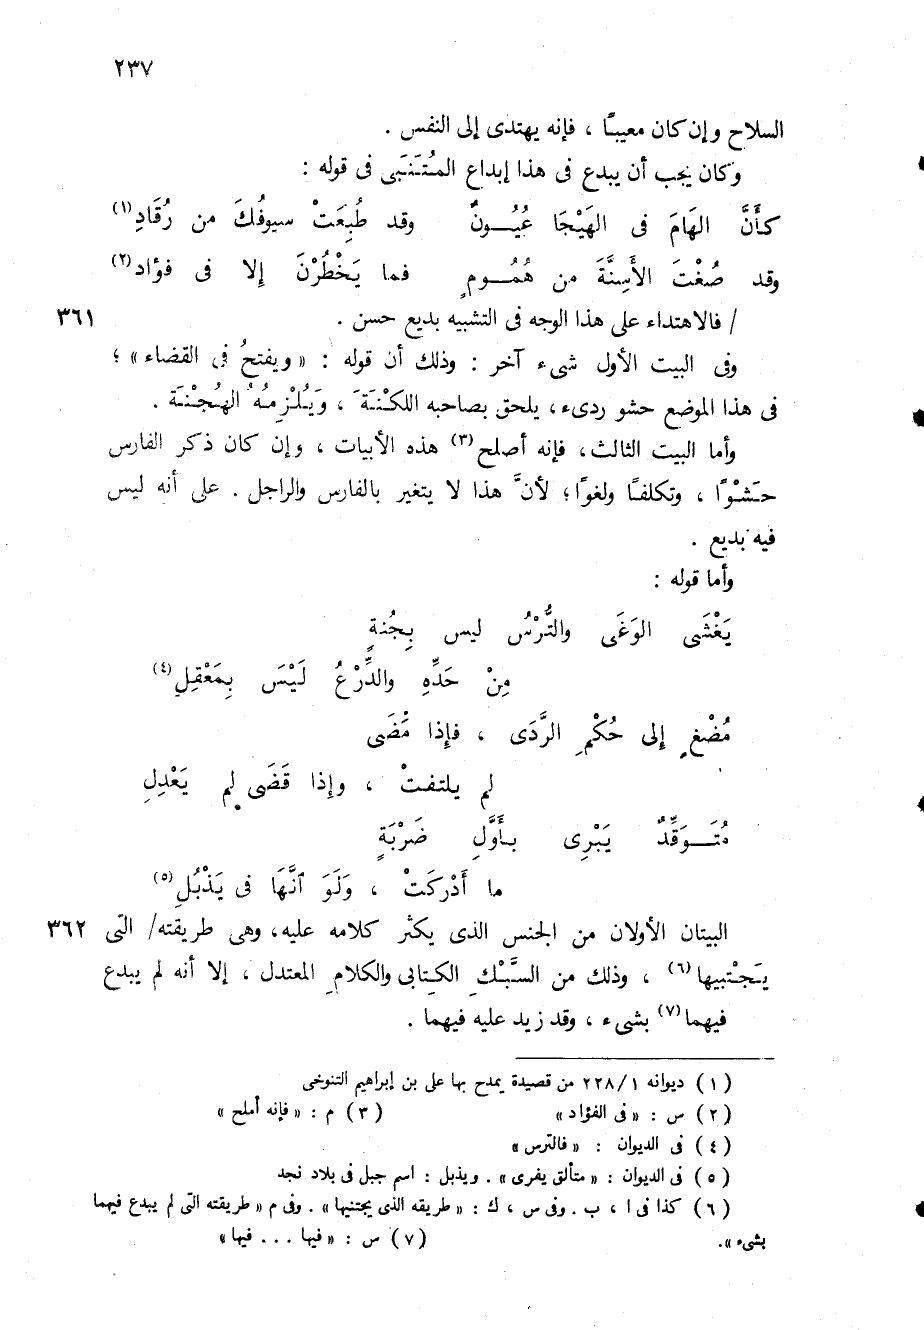 ٢٣٧
السلاح وإن كان معيبًا ، فإنه يهتدى إلى النفس .
وكان يجب أن يبدع فى هذا إبداع المُتَنَبى فى قوله :
كأَنَّ الهَامَ فى الهَيْجَا عُيُـــونٌ وقد طُبِعَتْ سيوفُكَ من رُقَادِ(١)
وقد صُغْتَ الأَسِنَّةَ من هُمُـــومٍ فما يَخْطُرْنَ إلا فى فؤاد(٢)
/ فالاهتداء على هذا الوجه فى التشبيه بديع حسن . ٣٦١
وفى البيت الأول شىء آخر : وذلك أن قوله : « ويفتحُ فى القضاء » ؛
فى هذا الموضع حشو ردىء، يلحق بصاحبه اللكْنَةَ ، وَيُلْزِمُهُ الهُجْنَة .
وأما البيت الثالث، فإنه أصلح(٣) هذه الأبيات ، وإن كان ذكر الفارس
حَشْوًا ، وتكلفًا ولغوًا؛ لأنَّ هذا لا يتغير بالفارس والراجل . على أنه ليس
فيه بديع .
وأما قوله :
يَغْشَى الوَغَى والتُّرْسُ ليس بِجُنةٍ
مِنْ حَدِّهِ والدِّرْعُ لَيْسَ بِمَعْقِلِ(٤)
مُصْغٍ إلى حُكْمِ الرَّدَى ، فإذا مَضَى
لم يلتفتْ ، وإذا قَضَى لم يَعْدِلِ
مُتَــوَقِّدٌ يَبْرِى بـأَوَّلِ ضَرْبَةٍ
ما أَدْرَكَتْ ، وَلَوَ ٱنَّهَا فى يَذْبُلِ(٥)
البيتان الأولان من الجنس الذى يكثر كلامه عليه، وهى طريقته/ التى ٣٦٢
يَجْتبيها(٦) ، وذلك من السَّبْكِ الكتابى والكلامِ المعتدل ، إلا أنه لم يبدع
فيهما(٧) بشىء ، وقد زيد عليه فيهما .
(١) ديوانه ٢٢٨/١ من قصيدة يمدح بها على بن إبراهيم التنوخى
(٢) س : « فى الفؤاد » (٣) م : « فإنه أملح »
(٤) فى الديوان : « فالترس »
(٥) فى الديوان : « متألق يفرى » . ويذبل : اسم جبل فى بلاد نجد
(٦) كذا فى ا ، ب . وفى س ، ك : « طريقه الذى يجتنيها » . وفى م « طريقته التى لم يبدع فيهما
بشىء ». (٧) س : « فيها . . . فيها »